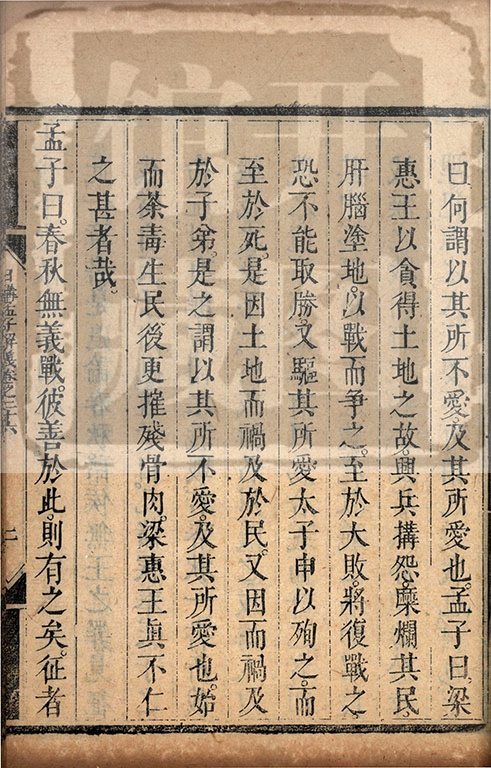 曰何謂以其所不愛及其所愛也。孟子曰。梁
惠王以貪得土地之故。興兵搆怨。糜爛其民。
肝腦塗地。以戰而爭之。至於大敗。將復戰之。
恐不能取勝。又驅其所愛太子申以殉之。而
至於死。是因土地而禍及於民。又因而禍及
於子弟。是之謂以其所不愛。及其所愛也。始
而荼毒生民後更摧殘骨肉。梁惠王眞不仁
之甚者哉。
孟子曰。春秋無義戰。彼善於此。則有之矣。征者
日講孟子解義卷之二十六